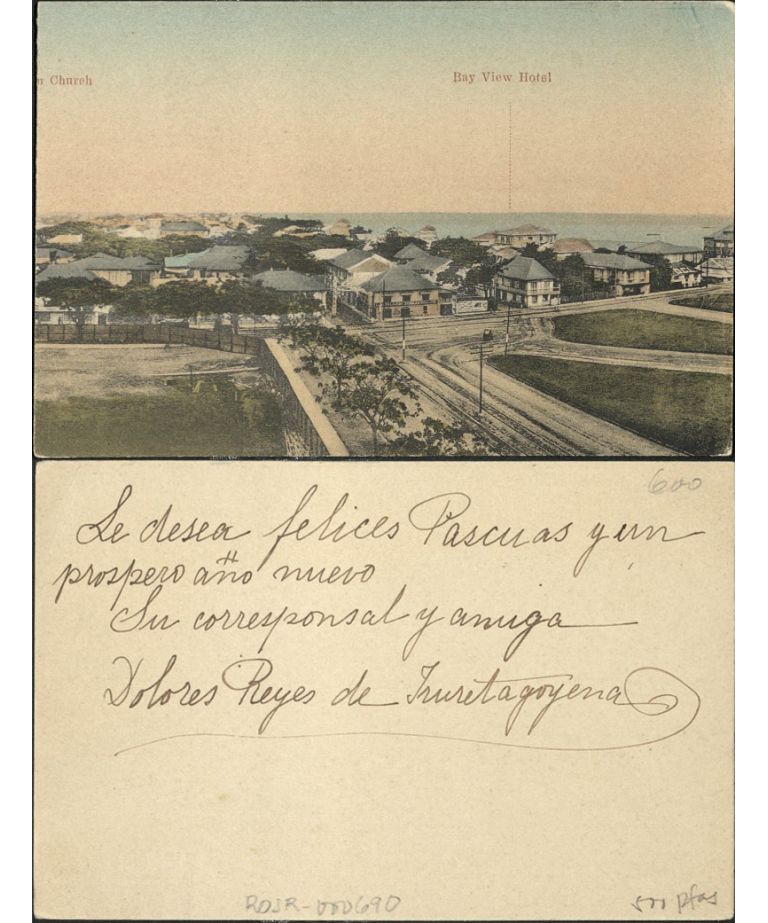 n Church
Bay View Hotel
600
Le desea felices Pascuas y un
prospero año nuevo
Su corresponsal y amiga
Dolores Reyes de Iruretagoyena
RDJR-000690
500 ptas